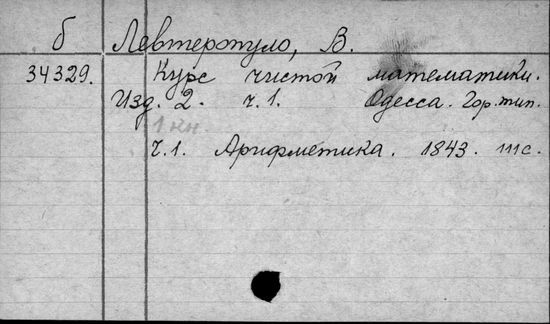 б Левтеропуло, В.
34329. Курс чистой математики.
Изд. 2. ч.1. Одесса. Гор. тип.
1 кн.
ч.1. Арифметика. 1843. 111с.